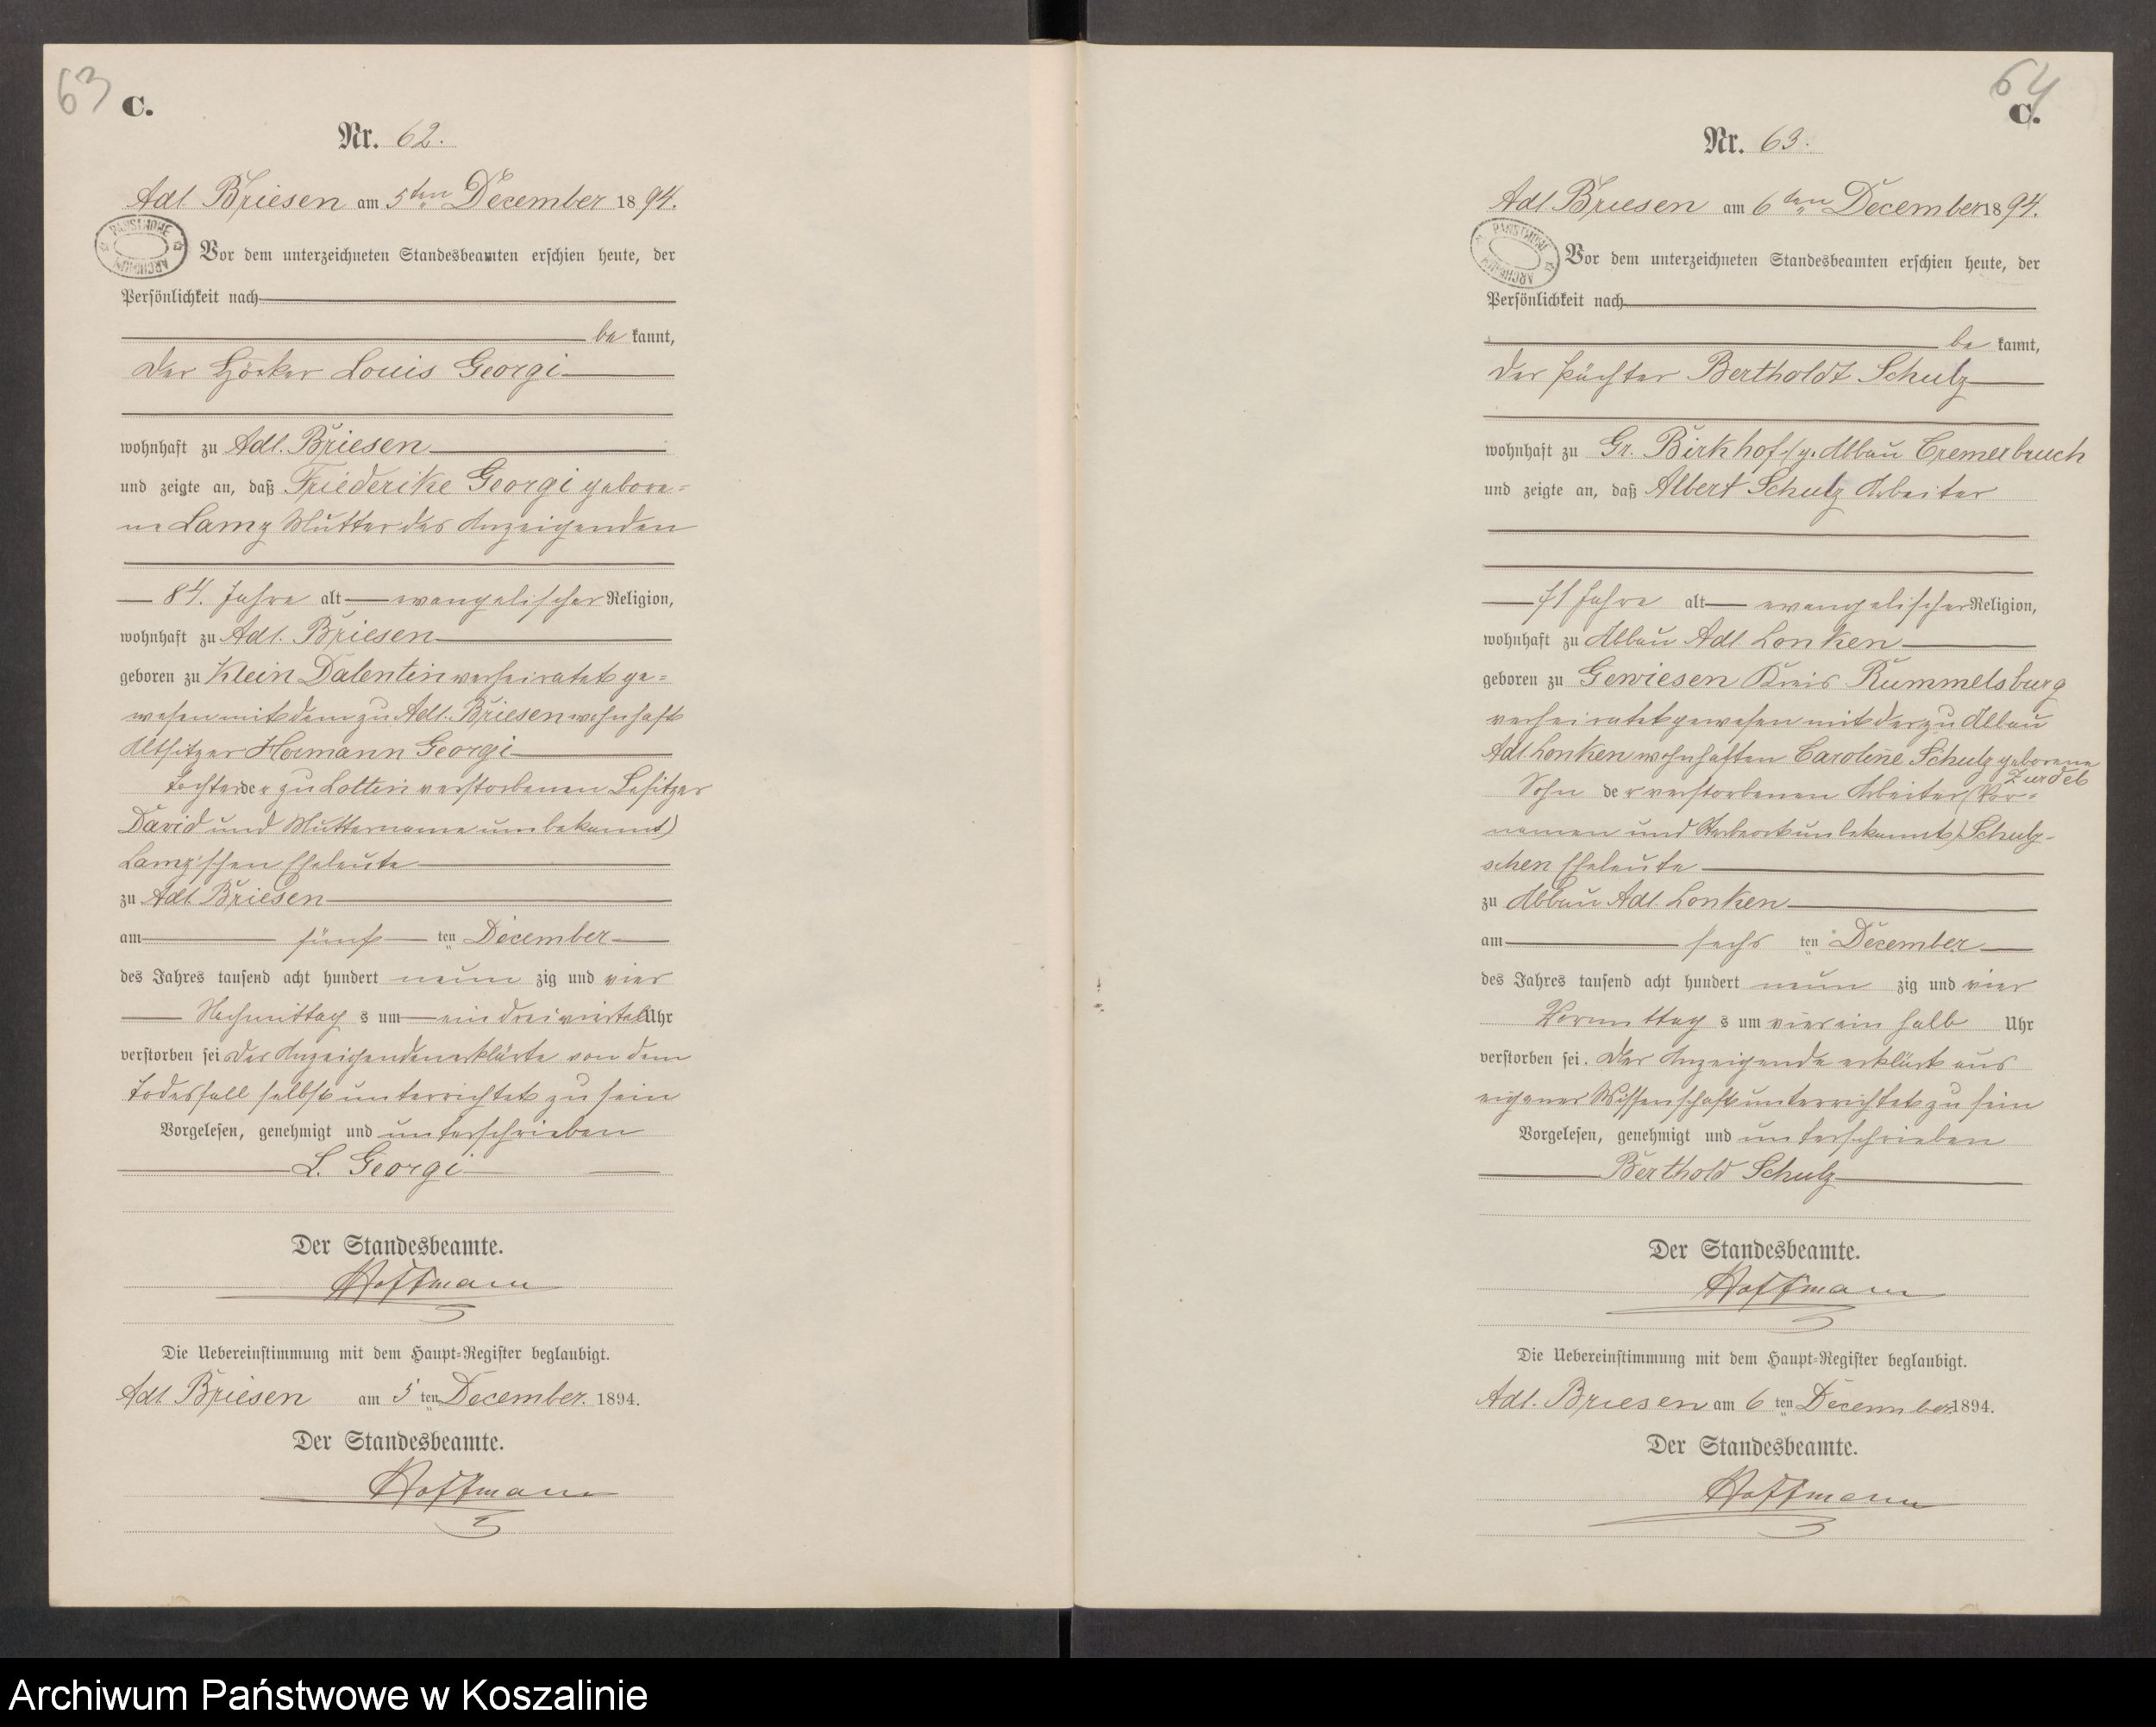 63
C.
Nr. 62.
Adl. Briesen am 5ten December 1894.
PAŃSTWOWE ARCHIWUM
Vor dem unterzeichneten Standesbeamten erschien heute, der
Persönlichkeit nach
be kannt,
der Höcker Louis Georgi
wohnhaft zu Adl. Briesen
und zeigte an, daß Friederike Georgi gebore=
ne Lamz Mutter des Anzeigenden
84. Jahre alt evangelischer Religion,
wohnhaft zu Adl. Briesen
geboren zu Klein Dalentin verheiratet ge=
wesen mit dem zu Adl. Briesen wohnhaft
Altsitzer Hermann Georgi
Tochter der zu Lottin verstorbenen Besitzer
David und Muttername unbekannt)
Lamz'schen Eheleute
zu Adl. Briesen
am fünf ten December
des Jahres tausend acht hundert neun zig und vier
Nachmittag s um ein dreiviertel Uhr
verstorben sei der Anzeigenden erklärte von dem
Todesfall selbst unterrichtet zu sein
Vorgelesen, genehmigt und unterschrieben
L. Georgi
Der Standesbeamte.
Hoffmann
Die Uebereinstimmung mit dem Haupt=Register beglaubigt.
Adl. Briesen am 5 ten December. 1894.
Der Standesbeamte.
Hoffmann
64
C.
Nr. 63.
Adl. Briesen am 6ten December 1894.
PAŃSTWOWE ARCHIWUM
Vor dem unterzeichneten Standesbeamten erschien heute, der
Persönlichkeit nach
be kannt,
der Pächter Bertholdt Schulz
wohnhaft zu Gr. Birkhof Abbau Cremerbruch
und zeigte an, daß Albert Schulz Arbeiter
71 Jahre alt evangelischer Religion,
wohnhaft zu Abbau Adl. Lonken
geboren zu Gewiesen Kreis Rummelsburg
verheiratet gewesen mit der zu Abbau
Adl Lonken wohnhaften Caroline Schulz geborene
Zurdel
Sohn der verstorbenen Arbeiter (Vor=
namen und Sterbeort unbekannt) Schulz-
schen Eheleute
zu Abbau Adl. Lonken
am sechs ten December
des Jahres tausend acht hundert neun zig und vier
Vormittag s um vier ein halb Uhr
verstorben sei. Der Anzeigende erklärt aus
eigener Wissenschaft unterrichtet zu sein
Vorgelesen, genehmigt und unterschrieben
Berthold Schulz
Der Standesbeamte.
Hoffmann
Die Uebereinstimmung mit dem Haupt=Register beglaubigt.
Adl. Briesen am 6 ten December 1894.
Der Standesbeamte.
Hoffmann
Archiwum Państwowe w Koszalinie